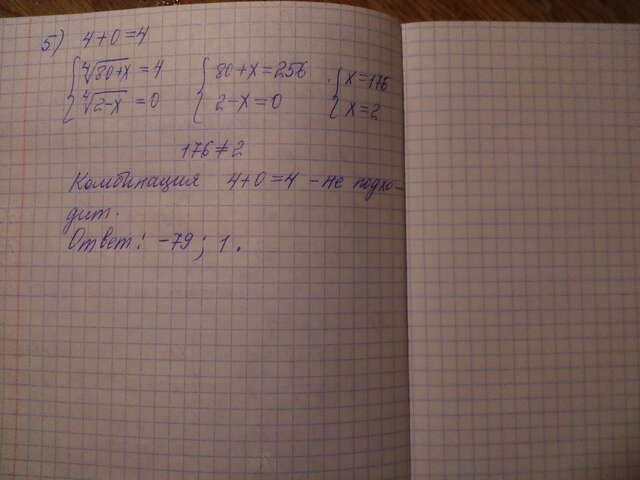 5) 4+0=4
{ ∜80+x = 4 { 80+x=256 { x=176
{ ∜2-x = 0 { 2-x=0 { x=2
176≠2
Комбинация 4+0=4 - не подхо-
дит.
Ответ: -79; 1.